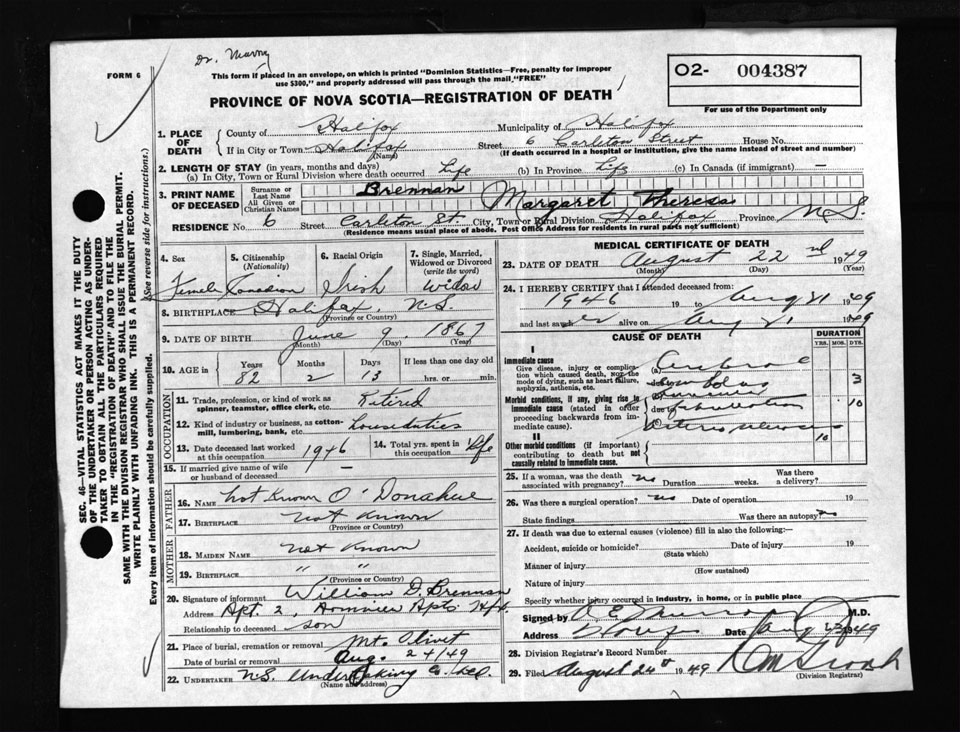 Dr. Murray
FORM 6
This form if placed in an envelope, on which is printed "Dominion Statistics—Free, penalty for improper
use $300," and properly addressed will pass through the mail, "FREE"
PROVINCE OF NOVA SCOTIA—REGISTRATION OF DEATH
O2- 004387
For use of the Department only
1. PLACE OF DEATH
County of Halifax Municipality of Halifax
If in City or Town Halifax Street 6 Carleton Street House No.
(Name) (If death occurred in a hospital or institution, give the name instead of street and number)
2. LENGTH OF STAY (in years, months and days)
(a) In City, Town or Rural Division where death occurred Life (b) In Province Life (c) In Canada (if immigrant) —
3. PRINT NAME OF DECEASED
Surname or Last Name Brennan
All Given or Christian Names Margaret Theresa
RESIDENCE No. 6 Street Carlton St. City, Town or Rural Division Halifax Province N.S.
(Residence means usual place of abode. Post Office Address for residents in rural parts not sufficient)
4. Sex 5. Citizenship (Nationality) 6. Racial Origin 7. Single, Married, Widowed or Divorced (write the word)
Female Canadian Irish Widow
8. BIRTHPLACE Halifax N.S.
(Province or Country)
9. DATE OF BIRTH June 9 1867
(Month) (Day) (Year)
10. AGE in Years Months Days If less than one day old
82 2 13 hrs. or min.
OCCUPATION
11. Trade, profession, or kind of work as spinner, teamster, office clerk, etc. Retired
12. Kind of industry or business, as cotton-mill, lumbering, bank, etc. housedutties
13. Date deceased last worked at this occupation 1946 14. Total yrs. spent in this occupation life
15. If married give name of wife or husband of deceased —
FATHER
16. Name Not Known O'Donahue
17. Birthplace Not Known
(Province or Country)
MOTHER
18. Maiden Name Not Known
19. Birthplace " "
(Province or Country)
20. Signature of informant William D. Brennan
Address Apt. 2, Apts. Hfx.
Relationship to deceased son
21. Place of burial, cremation or removal Mt. Olivet
Date of burial or removal Aug. 24/49
22. UNDERTAKER N.S. Undertaking Co. Ltd.
(Name and address)
MEDICAL CERTIFICATE OF DEATH
23. DATE OF DEATH August 22nd 1949
(Month) (Day) (Year)
24. I HEREBY CERTIFY that I attended deceased from:
1946 19 to Aug 21 1949
and last saw her alive on Aug 21 1949
CAUSE OF DEATH
DURATION
YRS. MOS. DYS.
I
Immediate cause
Give disease, injury or complication which caused death, not the mode of dying, such as heart failure, asphyxia, asthenia, etc.
(a) Cerebral
Embolus 3
Morbid conditions, if any, giving rise to immediate cause (stated in order proceeding backwards from immediate cause).
due to
Auricular fibrillation 10
due to
Arteriosclerosis 10
II
Other morbid conditions (if important) contributing to death but not causally related to immediate cause.
25. If a woman, was the death associated with pregnancy? no Duration weeks. Was there a delivery?
26. Was there a surgical operation? no Date of operation 19
State findings Was there an autopsy? no
27. If death was due to external causes (violence) fill in also the following:—
Accident, suicide or homicide? Date of injury 19
(State which)
Manner of injury
(How sustained)
Nature of injury
Specify whether injury occurred in industry, in home, or in public place
Signed by Murray M.D.
Address Date Aug 23 1949
28. Division Registrar's Record Number
29. Filed August 24th 1949
(Division Registrar)
SEC. 46—VITAL STATISTICS ACT MAKES IT THE DUTY
OF THE UNDERTAKER OR PERSON ACTING AS UNDER-
TAKER TO OBTAIN ALL THE PARTICULARS REQUIRED
IN THE "REGISTRATION OF DEATH" AND TO FILE THE
SAME WITH THE DIVISION REGISTRAR WHO SHALL ISSUE THE BURIAL PERMIT.
WRITE PLAINLY WITH UNFADING INK. THIS IS A PERMANENT RECORD.
Every item of information should be carefully supplied. (See reverse side for instructions.)